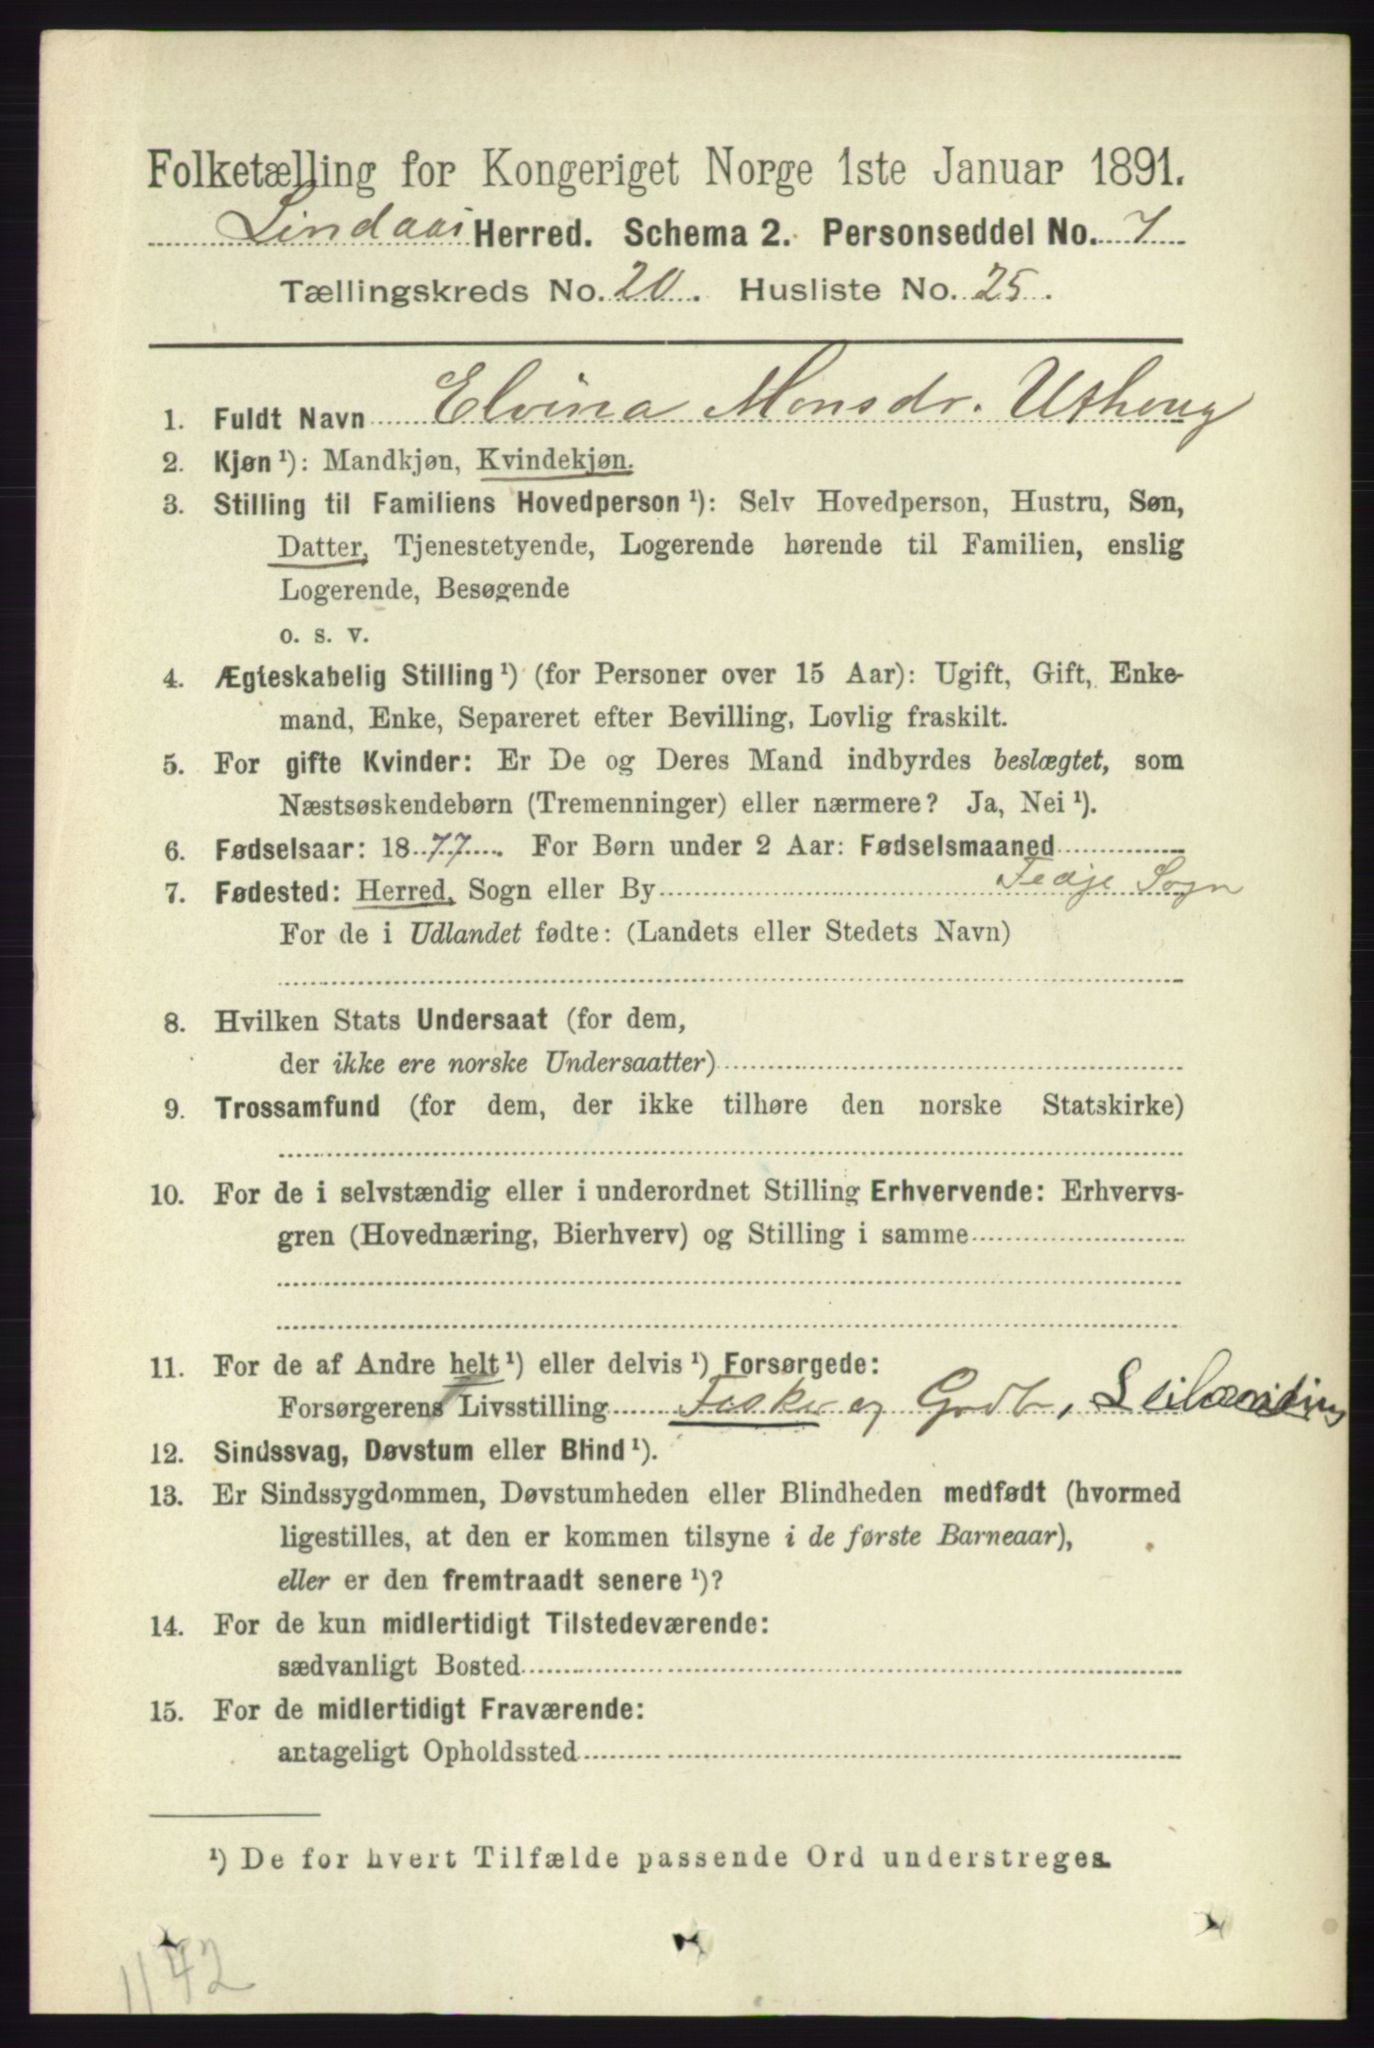 Folketælling for Kongeriget Norge 1ste Januar 1891.
Lindaas Herred. Schema 2. Personseddel No. 7
Tællingskreds No. 20. Husliste No. 25.
1. Fuldt Navn Elvina Monsdr. Utheug
2. Kjøn ¹): Mandkjøn, Kvindekjøn.
3. Stilling til Familiens Hovedperson ¹): Selv Hovedperson, Hustru, Søn,
Datter, Tjenestetyende, Logerende hørende til Familien, enslig
Logerende, Besøgende
o. s. v.
4. Ægteskabelig Stilling ¹) (for Personer over 15 Aar): Ugift, Gift, Enke-
mand, Enke, Separeret efter Bevilling, Lovlig fraskilt.
5. For gifte Kvinder: Er De og Deres Mand indbyrdes beslægtet, som
Næstsøskendebørn (Tremenninger) eller nærmere? Ja, Nei ¹).
6. Fødselsaar: 1877. For Børn under 2 Aar: Fødselsmaaned
7. Fødested: Herred, Sogn eller By Fedje Sogn
For de i Udlandet fødte: (Landets eller Stedets Navn)
8. Hvilken Stats Undersaat (for dem,
der ikke ere norske Undersaatter)
9. Trossamfund (for dem, der ikke tilhøre den norske Statskirke)
10. For de i selvstændig eller i underordnet Stilling Erhvervende: Erhvervs-
gren (Hovednæring, Bierhverv) og Stilling i samme
11. For de af Andre helt ¹) eller delvis ¹) Forsørgede:
Forsørgerens Livsstilling Fisker og Grdb, Leilænding
12. Sindssvag, Døvstum eller Blind ¹).
13. Er Sindssygdommen, Døvstumheden eller Blindheden medfødt (hvormed
ligestilles, at den er kommen tilsyne i de første Barneaar),
eller er den fremtraadt senere ¹)?
14. For de kun midlertidigt Tilstedeværende:
sædvanligt Bosted
15. For de midlertidigt Fraværende:
antageligt Opholdssted
¹) De for hvert Tilfælde passende Ord understreges.
1172